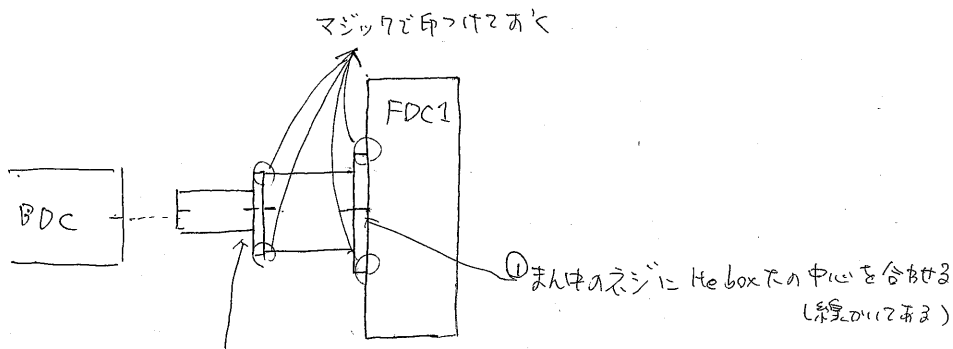 マジックで印つけておく
FDC1
BDC
①まん中のネジに He box大の中心を合わせる
(線かいてある)